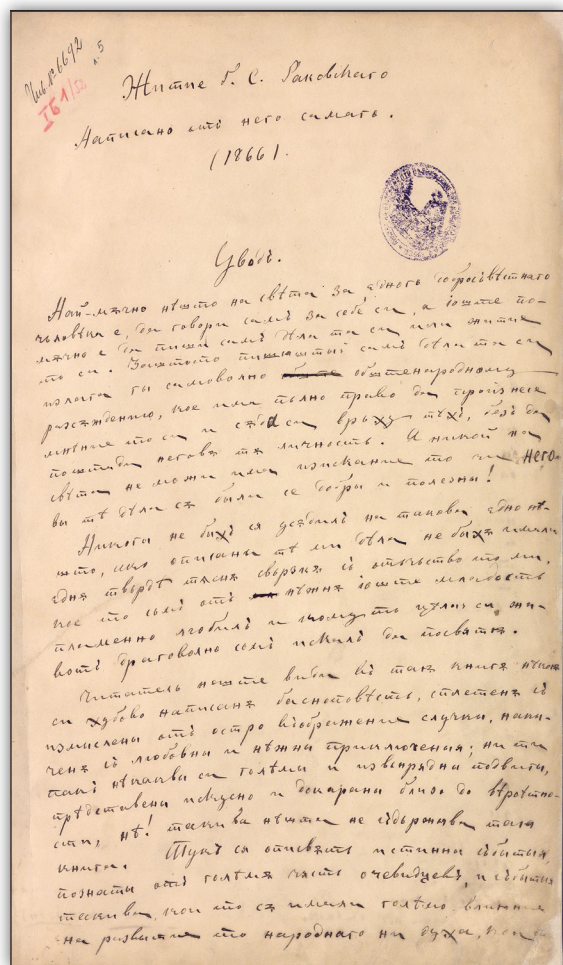 Инв. № 6692
л. 5
IБ1/52
Житие Г. С. Раковскаго
Написано отъ него самаго.
(1866).
Уводъ.
Най-мѫчно нѣшто на свѣта за едного добросъвѣстнаго
чьловѣка е, да говори самъ за себе си, а іоште по-
мѫчно е да пиши самъ дѣла та си или житие
то си. Заштото пишѫштый самъ дѣла та си
излага гы самоволно обштенародному
разсѫждению, кое има пълно право да произнесе
мнѣние то си и сѫдъ си врьху тѣхъ, безъ да
поштѣди негова тѫ личность. А никой на
свѣта не можи има изискание то че него-
вы тѣ дѣла сѫ были се добры и полезны!
Никога не быхъ ся усѣдилъ на такова едно нѣ-
што, ако описаны тѣ ми дѣла не быхѫ имали
еднѫ твърдѣ тѣснѫ свръзкѫ съ отечьство то ми,
кое то съмъ отъ нѣжнѫ іоште младость
пламенно любилъ и комуто цѣлъ си жи-
вотъ драговолно съмъ искалъ да посвятѫ.
Читатель нѣште види въ таѫ книгѫ нѣкоѫ
си худово написанѫ баснословѣсть, сплетенѫ съ
измислены отъ остро въображение случки, нали-
ченѫ съ любовны и нѣжны приключения; ни ти
пакъ нѣкаква си голѣмы и извънрядны подвигы,
прѣдставены искусно и докараны близо до вѣроятно-
сти, нѣ! такива нѣшта не съдържява тая
книга. Тукъ ся описвять истинны събытия,
познаты отъ голѣмѫ часть очевидцевъ, и събытия
такива, кои то сѫ имали голѣмо влияние
на развитие то народнаго ни духа,